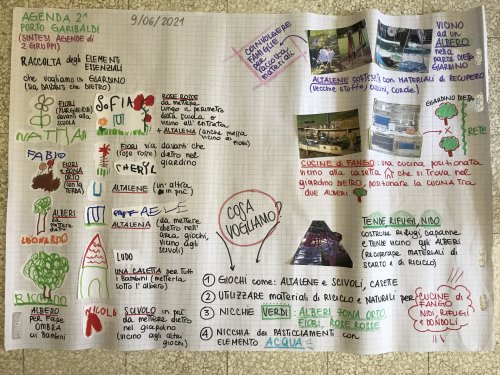 AGENDA 2ª
PORTO GARIBALDI
(SINTESI AGENDE di
2 GRUPPI)
9/06/2021
RACCOLTA degli ELEMENTI
ESSENZIALI
che vogliamo in GIARDINO
(SIA DAVANTI che DIETRO)
FIORI
davanti alla
SCUOLA
MATTIA
SOFIA
ROSE ROSSE
da mettere
lungo il perimetro
della scuola o
vicino all'entrata
+ ALTALENA (anche messa
vicino ai fiori)
FABIO
FIORI
ZONA
ORTO
(con la
TERRA)
FIORI sia davanti che
(rose rosse) dietro nel
giardino
CHERYL
ALTALENE (un'altra
in più)
ALBERI
da
mettere
DIETRO
LEONARDO
RAFFAELE
ALTALENA
(da mettere
dietro nell'
area giochi,
vicino agli
scivoli)
LUDO
UNA CASETTA per tutti
i Bambini (metterla
sotto l'albero)
RICCARDO
ALBERO
per fare
OMBRA
ai Bambini
NICOLÒ
SCIVOLO in più
da mettere dietro
nel giardino
(vicino agli altri
giochi)
COINVOLGERE
FAMIGLIE
PER
RACCOLTA
materiali
VICINO
ad un
ALBERO
nella
parte DIETRO
GIARDINO
ALTALENE COSTRUITE con MATERIALI DI RECUPERO
(VECCHIE STOFFE, CUSCINI, CORDE)
GIARDINO DIETRO
RETE
CUCINE di FANGO: una CUCINA posizionata
vicino alla casetta che si trova nel
giardino DIETRO, posizionare la CUCINA TRA
DUE ALBERI
COSA
VOGLIAMO?
TENDE, RIFUGI, NIDO
COSTRUIRE RIFUGI, CAPANNE
e TENDE vicino agli ALBERI
(recuperare MATERIALI DI
SCARTO e di RICICLO)
1 GIOCHI come: ALTALENE e SCIVOLI, CASETTE
2 UTILIZZARE materiali di RICICLO e NATURALI per
CUCINE di
FANGO
NIDI, RIFUGI
e DONDOLI
3 NICCHIE VERDI: ALBERI, ZONA ORTO,
FIORI, ROSE ROSSE
4 NICCHIA dei PASTICCIAMENTI con
ELEMENTO ACQUA